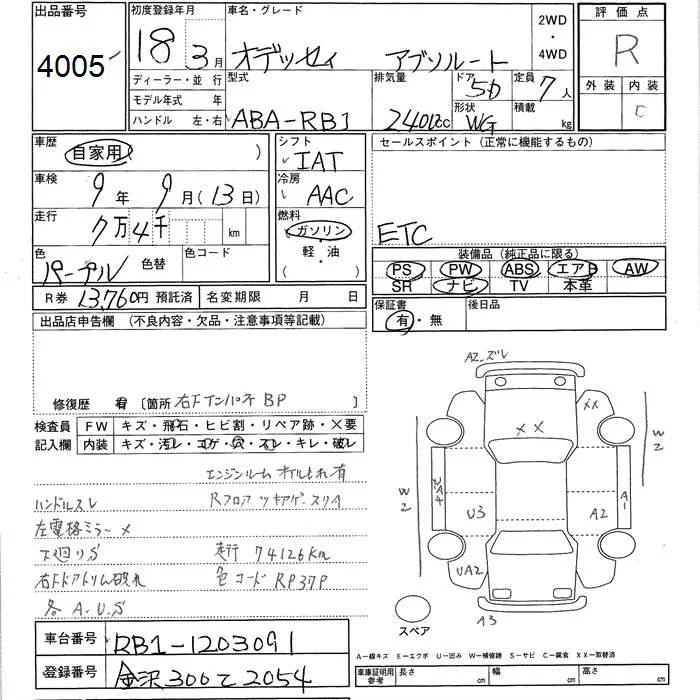 出品番号 初度登録年月 車名・グレード 2WD ・ 4WD 評価点
4005 18 3月 オデッセイ アブソルート R
ディーラー・並行 型式 排気量 ドア 5D 定員 7人 外装 内装
モデル年式 年 形状 積載 C
ハンドル 左・右 ABA-RB1 2400cc WG kg
車歴 シフト セールスポイント（正常に機能するもの）
自家用（ ） IAT
車検 冷房
9年 9月（13日） AAC
走行 燃料
7万4千 km ガソリン ETC
色 色替 色コード 軽・油 装備品（純正品に限る）
パープル （ ） PS PW ABS エアB AW
SR ナビ TV 本革
R券 13,760円 預託済 名変期限 月 日 保証書 後日品
有・無
出品店申告欄 （不良内容・欠品・注意事項等記載）
修復歴 有 〔箇所 右Fインパネ BP 〕
検査員 FW キズ・飛石・ヒビ割・リペア跡・×要
記入欄 内装 キズ・汚レ・コゲ・穴・スレ・キレ・破レ
エンジンルーム オイルもれ有
ハンドルスレ Rフロア
左電格ミラー ×
下廻りS 走行 74126Km
右ドアトリム破れ 色コード RP37P
各 A.U.S
車台番号 RB1-1203091
登録番号 金沢300て2054
A2.ズレ
XX
XX
W2
W2
U・A4
A-1
U3
A2
UA2
A3
スペア
A－線キズ E－エクボ U－凹み W－補修跡 S－サビ C－腐食 XX－取替済
車庫証明用参考 長さ cm 幅 cm 高さ cm